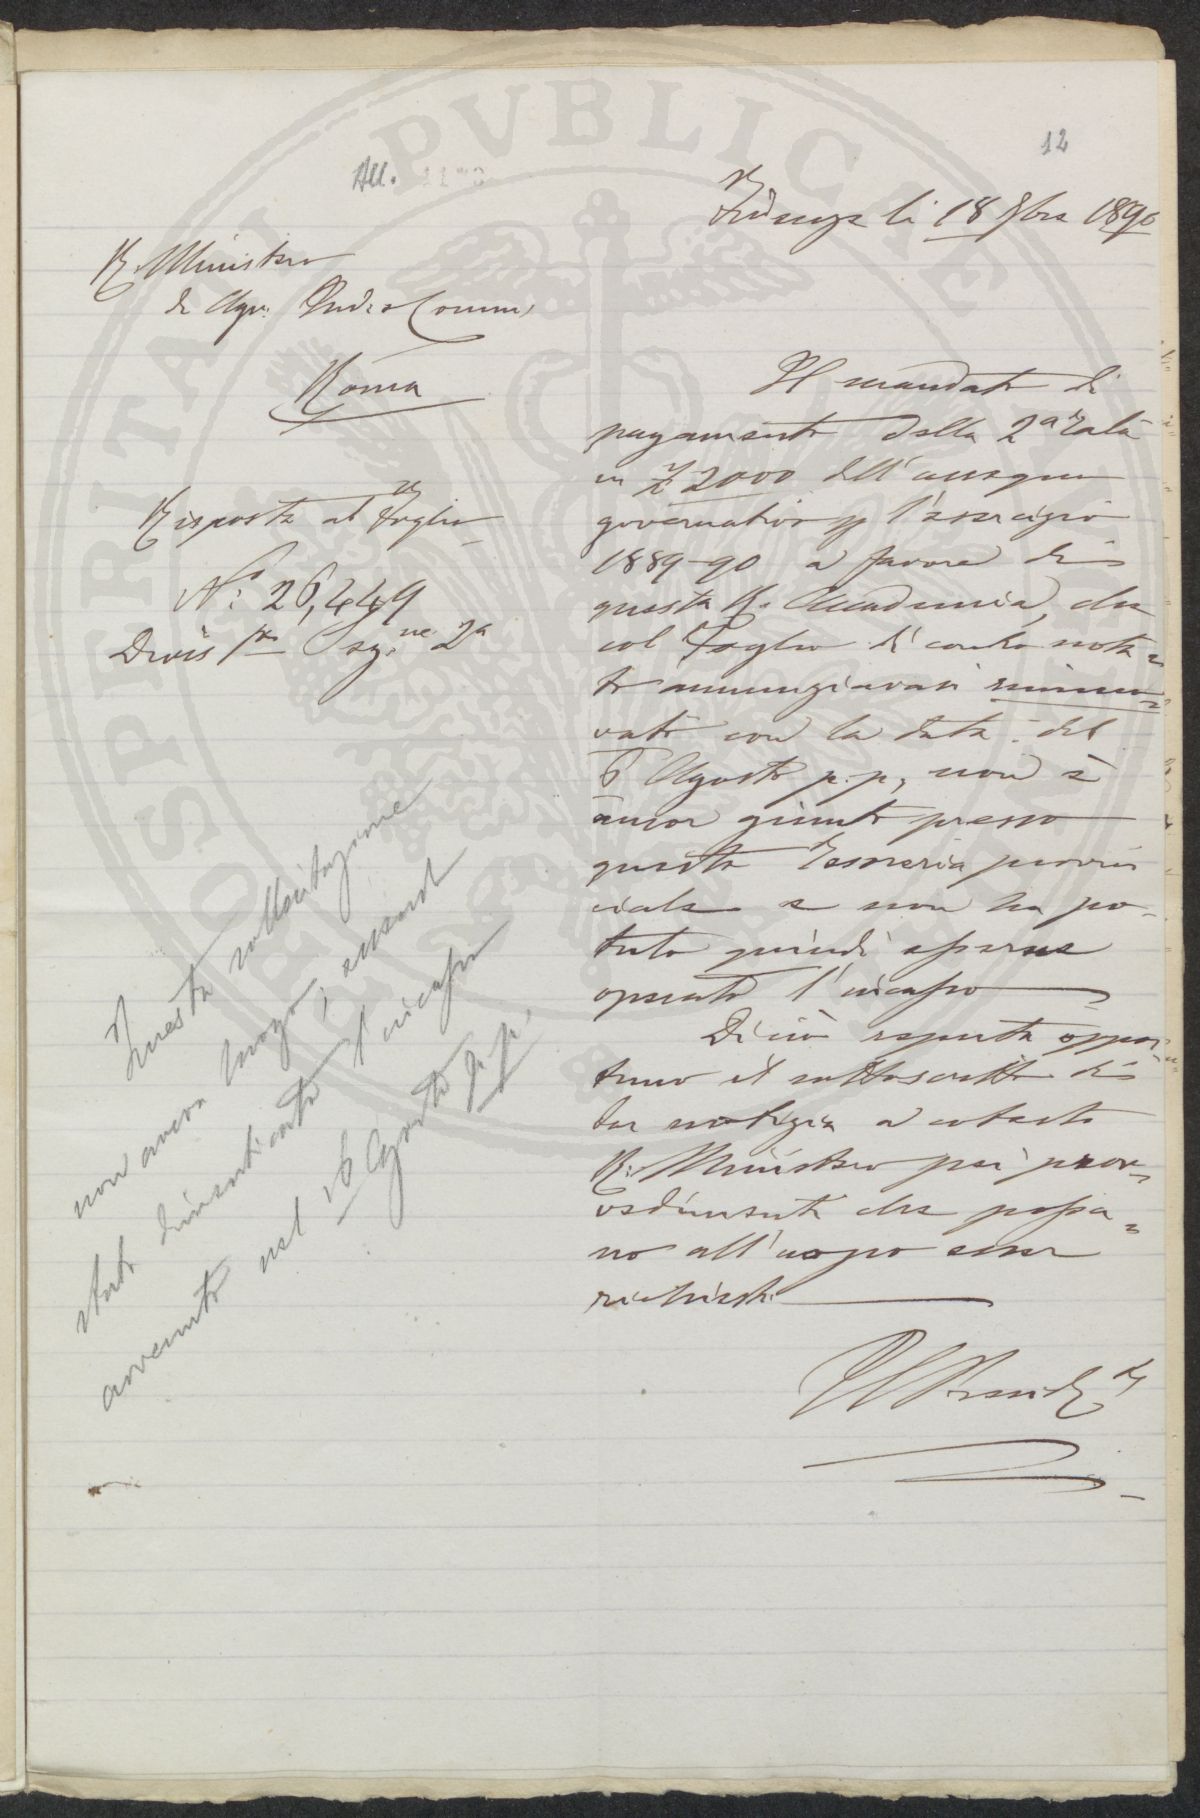 12
All.
Firenze li 18 9bre 1890
R. Ministero
di Agr. Ind. e Comm.
Roma
Risposta al Foglio
N.° 26,449
Divis 1ª Sez.ne 2ª
Il mandato di
pagamento della 2ª rata
in £ 2000 dell'assegno
governativo p l'esercizio
1889-90 a favore di
questa R. Accademia, che
col Foglio di contro nota=
to annunziavasi rinno=
vato con la data del
6 Agosto p.p., non è
ancor giunto presso
questa Tesoreria provin
ciale e non ha po=
tuto quindi essersene
operato l'incasso
Di ciò reputa oppor=
tuno il sottoscritto di
dar notizia a cotesto
R. Ministero pei prov=
vedimenti che possa=
no all'uopo esser
richiesti
Il Presid.e
Questa sollecitazione
non aveva luogo, essendo
stato dimenticato l'incasso
avvenuto nel 16 Agosto p.p.
PROSPERITATI PUBLICAE